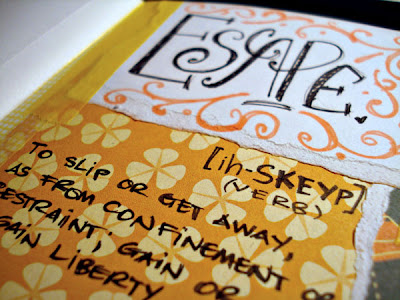 ESCAPE.
[ih-SKEYP]
(VERB)
TO SLIP OR GET AWAY,
AS FROM CONFINEMENT OR
RESTRAINT; GAIN OR
GAIN LIBERTY